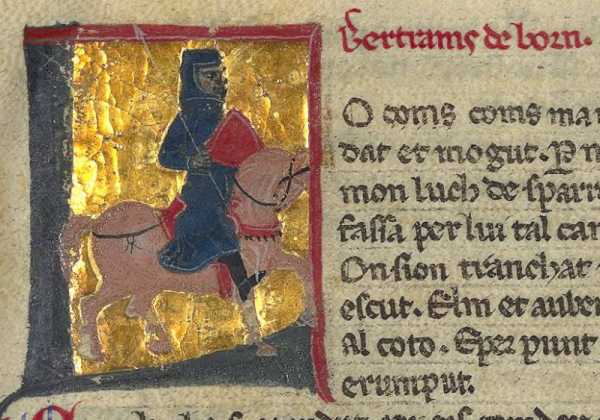 Bertrams de born.
O coms coms ma
dat et mogut. P
mon luch de sparr
fassa per lui tal can
On sion tranchat
escut. Elm et auber
Al coto. Sper punt
erumput.